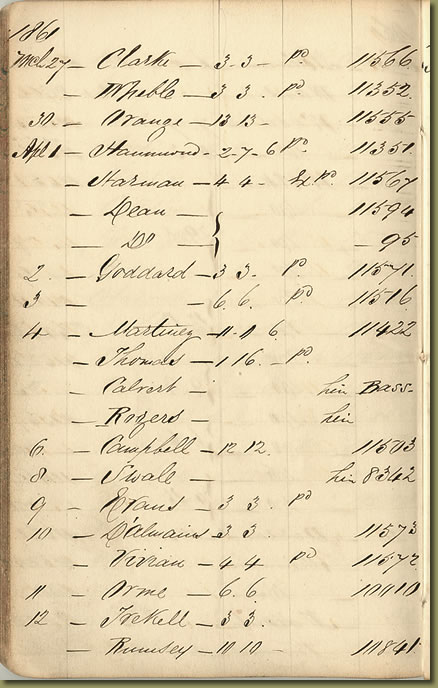 1861
Mch 27 – Clarke – 3 3 – pd 11566
– Wheble – 3 3 . pd 11352
30 – Orange – 13 13 – 11555
Apl 1 – Hammond – 2 – 7 – 6 pd 11351
– Harman – 4 4 – pd 11567
– Dean – 11594
– Do – – 95
2 . – Goddard – 3 3 . pd 11571
3 – – 6 . 6 . pd 11516
4 – 11 . 11 6 . 11422
– Thomas – 1 16 . – pd
– Calvert – his Bass –
– Rogers – his
6 . – Campbell – 12 12 . 11503
8 – Swale – his 8342
9 – Evans – 3 3 . pd
10 – D'Almaine – 3 3 11573
– Vivian – 4 4 pd 11572
11 – Orme – 6 . 6
12 – Frekell – 3 3 .
– Rumsey – 10 10 – 10841